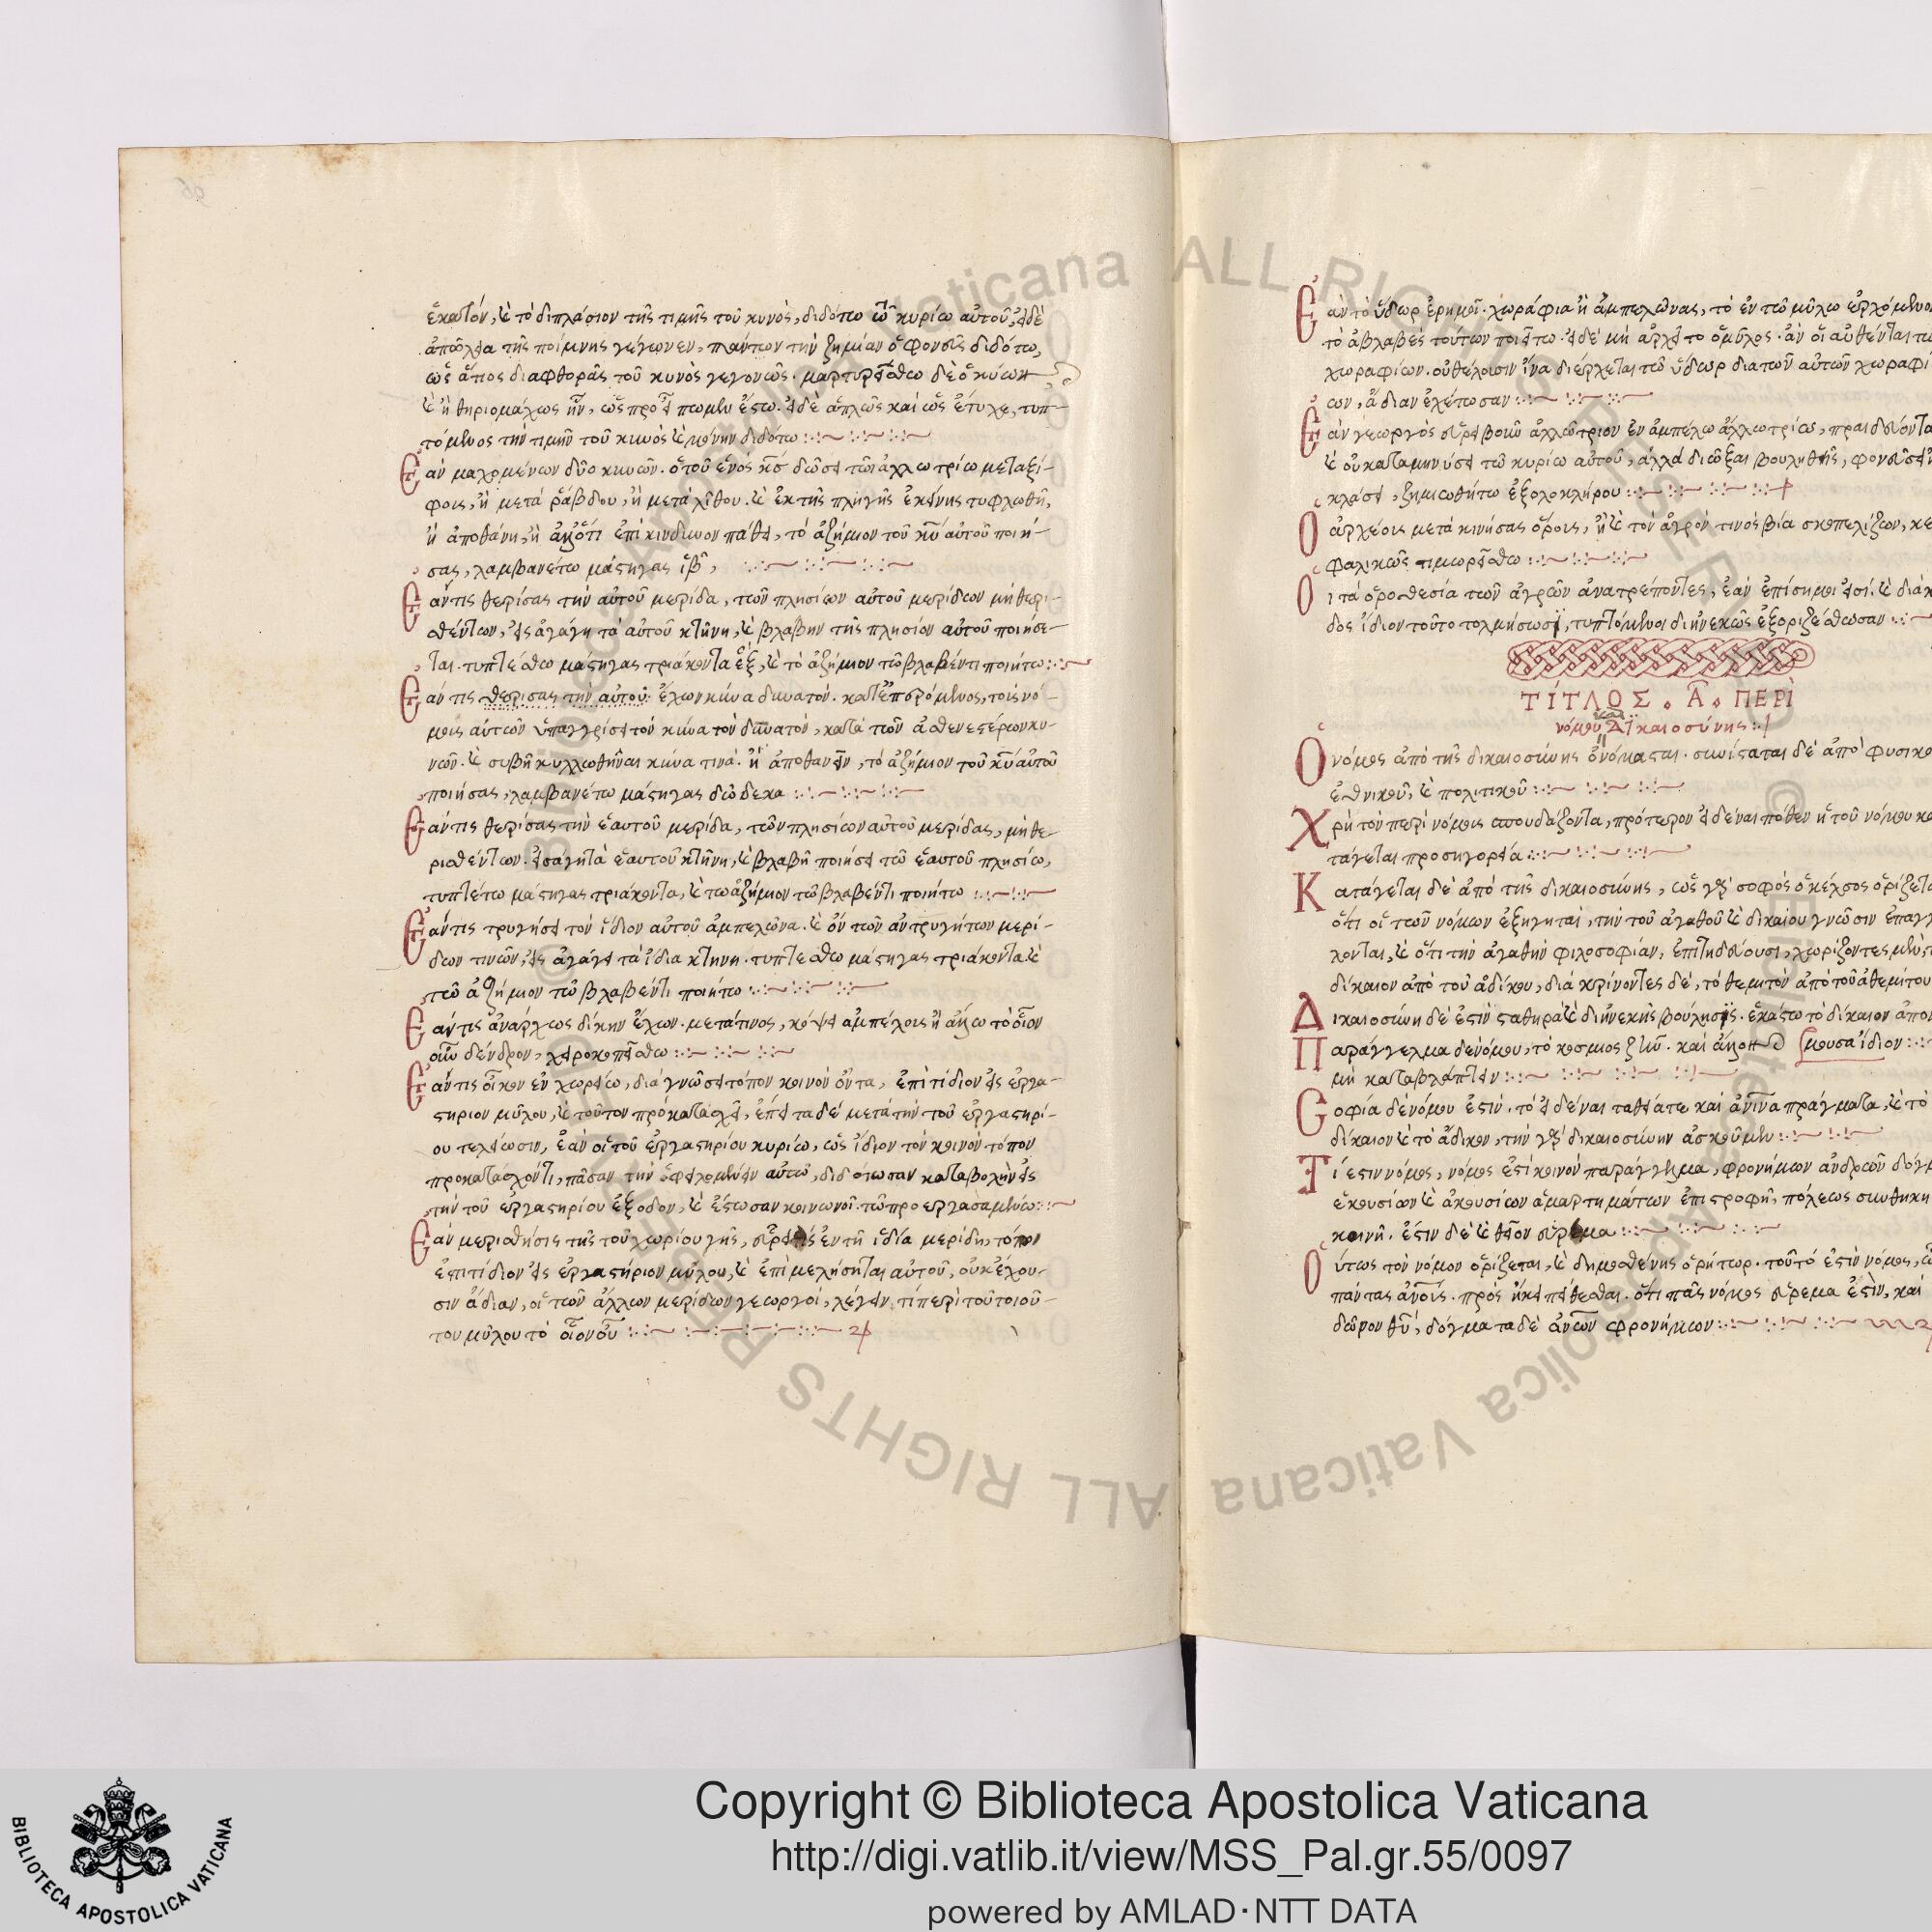 ἑκατόν, καὶ τὸ διπλάσιον τῆς τιμῆς τοῦ κυνὸς, διδότω τῶ κυρίω αὐτοῦ, εἰ δὲ
ἀπώλεια τῆς ποίμνης γέγονεν, πάντων τὴν ζημίαν ὁ φονεὺς διδότω,
ὡς αἴτιος διαφθορᾶς τοῦ κυνὸς γεγονὼς. μαρτυρείσθω δὲ ὁ κύων
καὶ ἢ θηριομάχως ἦν, ὡς προείπωμεν ἔστω. εἰ δὲ ἁπλῶς καὶ ὡς ἔτυχε, τυπ-
τόμενος τὴν τιμὴν τοῦ κυνὸς καὶ μόνην διδότω
Ἐὰν μαχομένων δύο κυνῶν. ὁ τοῦ ἑνὸς κσ δώσει τῶ ἀλλωτρίω μετα ξί-
φους, ἢ μετὰ ῥάβδου, ἢ μετὰ λίθου. καὶ ἐκ τῆς πληγῆς ἐκείνης τυφλωθῆ,
ἢ ἀποθάνη, ἢ ἄλλό τι ἐπικίνδυνον πάθει, τὸ ἀζήμιον τοῦ κυ αὐτοῦ ποιή-
σας, λαμβανέτω μάστιγας ιβ,
Ἐάν τις θερίσας τὴν αὐτοῦ μερίδα, τῶν πλησίων αὐτοῦ μερίδων μὴ θερι-
σθέντων, εἰσαγάγη τὰ αὐτοῦ κτήνη, καὶ βλάβην τῆς πλησίον αὐτοῦ ποιήσε-
ται. τυπτέσθω μάστιγας τριάκοντα ἓξ, καὶ τὸ ἀζήμιον τῶ βλαβέντι ποιήτω
Ἐάν τις θερισας την αὐτοῦ ἔχων κύνα δυνατόν. κατεπαιρόμενος, τοῖς νό-
μοις αὐτῶν ὑπαγγρίσει τὸν κύνα τὸν δυνατὸν, κατὰ τῶν ἀσθενεστέρων κυ-
νῶν. καὶ συβῆ κυλλωθῆναι κύνα τινὰ. ἢ ἀποθανεῖν, τὸ ἀζήμιον τοῦ κυ αὐτοῦ
ποιήσας, λαμβανέτω μάστιγας δώδεκα
Ἐάν τις θερίσας τὴν ἑαυτοῦ μερίδα, τῶν πλησίων αὐτοῦ μερίδας, μὴ θε-
ρισθέντων. εἰσαγητὰ ἑαυτοῦ κτήνη, καὶ βλαβῆ ποιήσει τῶ ἑαυτοῦ πλησίω,
τυπτέτω μάστιγας τριάκοντα, καὶ τω ἀζήμιον τῶ βλαβέντι ποιήτω
Ἐάν τις τρυγήσει τὸν ἴδιον αὐτοῦ ἀμπελῶνα. καὶ ὂν τῶν ἀντρυγήτων μερί-
δων τινῶν, εἰσαγάγει τὰ ἴδια κτήνη. τυπτέσθω μάστιγας τριάκοντα. καὶ
τῶ ἀζήμιον τῶ βλαβέντι ποιήτω
Ἐάν τις ἀνάρχως δίκην ἔχων. μετάτινος, κόψει ἀμπέλοις ἢ ἄλλω τὸ οἷον
οὖν δένδρον, χειροκοπείσθω
Ἐάν τις οἶκον ἐν χωρείω, διαγνώσει τόπον κοινὸν ὄντα, ἐπιτίδιον εἰς ἐργα-
στηριον μύλου, καὶ τοῦτον προκατασχεῖ, ἔπειτα δὲ μετὰ τὴν τοῦ ἐργαστηρί-
ου τελείωσιν, ἐὰν οἱ τοῦ ἐργαστηρίου κυρίω, ὡς ἴδιον τὸν κοινὸν τόπον
προκατασχόντι, πᾶσαν τὴν ὀφειλομένην αὐτῶ, διδότωσαν καταβολὴν εἰς
τὴν τοῦ ἐργαστηρίου ἔξοδον, καὶ ἔστωσαν κοινωνοῖ. τῶ προεργασαμένω
Ἐὰν μερισθήσις τῆς τοῦ χωρίου γῆς, εὕρει τις ἐν τῆ ἰδία μερίδη, τόπον
ἐπιτίδιον εἰς ἐργαστήριον μύλου, καὶ ἐπιμελήσηται αὐτοῦ, οὐκ ἔχου-
σιν ἄδιαν, οἱ τῶν ἄλλων μερίδων γεωργοὶ, λέγειν τί περὶ τοῦ τοιού-
του μύλου τὸ οἷον οὖν
Ἐὰν τὸ ὕδωρ ἐρημοῖ. χωράφια ἢ ἀμπελῶνας, τὸ ἐν τῶ μύλω ἐρχόμενον
τὸ ἀβλαβὲς τούτων ποιείτω. εἰ δὲ μὴ ἀργεῖτο ὁ μύλος. ἂν οἱ αὐθένται τῶ
χωραφίων. οὐ θέλοισιν ἵνα διέρχεται τὸ ὕδωρ δια τῶν αὐτῶν χωραφί
ων, ἄδιαν ἐχέτωσαν
Ἐὰν γεωργὸς εὕρει βοῦν ἀλλώτριον ἐν ἀμπέλω ἀλλωτρίω, πραιδεύοντα
καὶ οὐ καταμηνύσει τῶ κυρίω αὐτοῦ, ἀλλὰ διῶξαι βουληθεὶς, φονεύσει ἢ
κλάσει, ζημιωθήτω ἐξολοκλήρου
Ὁ ἀρχέοις μετὰ κινήσας ὅροις, ἢ καὶ τὸν ἀγρὸν τινὸς βία σκοπελίζων, κε
φαλικῶς τιμωρείσθω
Οἱ τὰ ὁροθεσία τῶν ἀγρῶν ἀνατρέποντες, ἐὰν ἐπίσημοι εἰσί. καὶ διὰ κ
δος ἴδιον τοῦτο τολμήσωσι, τυπτόμενοι διηνεκῶς ἐξοριζέσθωσαν
ΤΊΤΛΟΣ. Α. ΠΕΡῚ
νόμου καὶ Δικαιοσύνης
Ὁ νόμος ἀπὸ τῆς δικαιοσύνης ὀνόμασται. συνίσταται δὲ ἀπὸ φυσικο
ἐθνικοῦ, καὶ πολιτικοῦ
Χρὴ τὸν περὶ νόμοις σπουδάζοντα, πρότερον εἰδέναι πόθεν ἡ τοῦ νόμου κα
τάγεται προσηγορεία
Κατάγεται δὲ ἀπὸ τῆς δικαιοσύνης, ὡς γὰρ σοφὸς ὁ κέλσος ὁρίζετα
ὅτι οἱ τῶν νόμων ἐξηγηταὶ, τὴν τοῦ ἀγαθοῦ καὶ δικαίου γνῶσιν ἐπαγγ
λονται, καὶ ὅτι τὴν ἀγαθὴν φιλοσοφίαν, ἐπιτηδεύουσι, χωρίζοντες μὲν, τ
δίκαιον ἀπὸ τοῦ ἀδίκου, διὰ κρίνοντες δὲ, τὸ θεμιτὸν ἀπὸ τοῦ ἀθεμίτου
Δικαιοσύνη δέ ἐστὶν σταθηρὰ καὶ διηνεκὴς βούλησις. ἑκάστω τὸ δίκαιον ἀπον
Παράγγελμα δὲ νόμου, τὸ κοσμιος ζῆν. καὶ ἄλλον μουσα ἴδιον
μὴ καταβλάπτειν
Σοφία δὲ νόμου ἐστὶν. τὸ εἰδέναι τα θεῖα τε καὶ ἀνινα πράγματα, καὶ τὸ
δίκαιον καὶ τὸ ἄδικον, τὴν γὰρ δικαιοσύνην ἀσκοῦμεν
Τί ἐστιν νόμος, νόμος ἐστὶ κοινὸν παράγγελμα, φρονήμων ἀνδρῶν δόγμ
ἑκουσίων καὶ ἀκουσίων ἁμαρτημάτων ἐπιστροφὴ, πόλεως συνθηκη
κοινὴ. ἔστιν δὲ καὶ θεῖον εὕρεμα
Οὕτως τὸν νόμον ὁρίζεται, καὶ δημοσθένης ὁ ρήτωρ. τοῦτό ἐστὶν νόμος, ὧ
πάντας ἀνοις. πρὸς ἥκει πείθεσθαι. ὅτι πᾶς νόμος εὕρεμα ἐστὶν, καὶ
δῶρον θυ, δόγματα δὲ ἀνων φρονήμων
Copyright © Biblioteca Apostolica Vaticana
http://digi.vatlib.it/view/MSS_Pal.gr.55/0097
powered by AMLAD·NTT DATA
BIBLIOTECA APOSTOLICA VATICANA